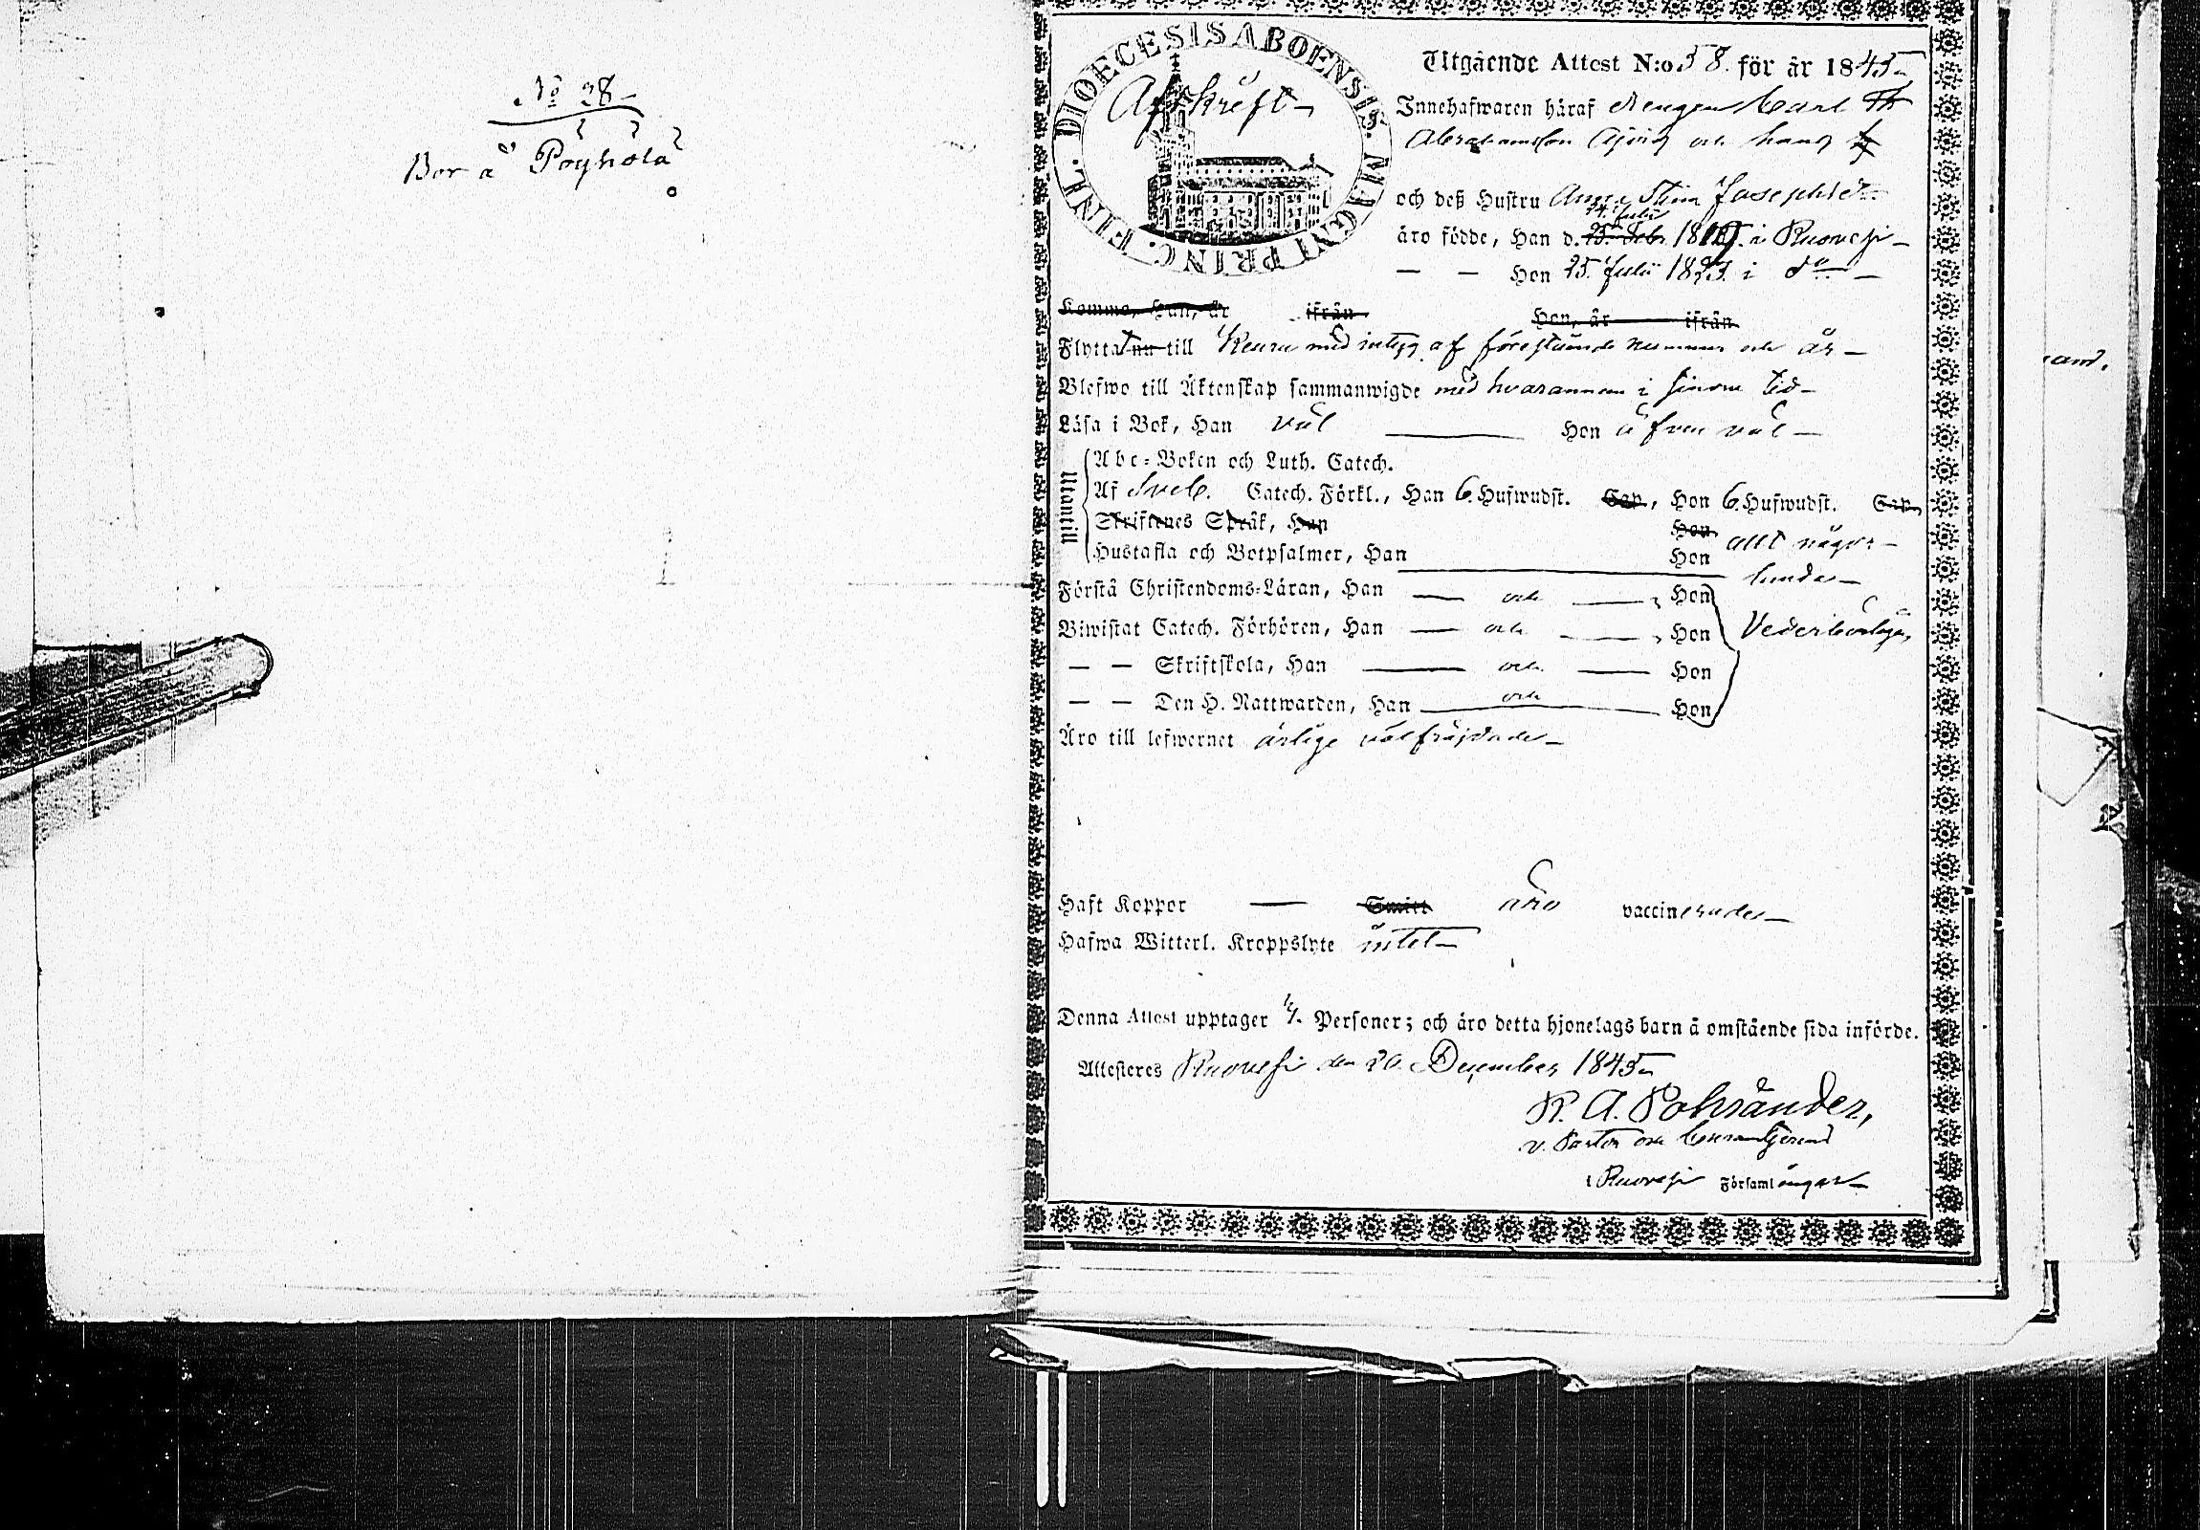 No 28
Bor å Poyhola
DIOECESIS ABOENSIS. MAGNI PRINC. FINL.
Afskrift
Utgående Attest N:o 58. för år 1845
Innehafwaren häraf drengen Carl
Abrahamsson och hans
och deß Hustru Anna Stina Josephsdr
14 Julii
äro födde, Han d. 25. Febr. 1819. i Ruovesi
— — Hon 25. Julii 1823. i do
Komme, Han, år ifrån Hon, år ifrån
Flyttat nu till Keuru med intyg af föregående nummer och år
Blefwo till Äktenskap sammanwigde med hvarannan i sinom tid
Läsa i Bok, Han väl — Hon äfven väl
Utantill
Abc-Boken och Luth. Catech.
Af Sveb. Catech. Förkl., Han 6. Hufwudst. Cap, Hon 6. Hufwudst. Cap,
Skriftenes Språk, Han Hon
Hustafla och Botpsalmer, Han Hon allt någor-
lunda
Förstå Christendoms-Läran, Han — och —, Hon
Biwistat Catech. Förhören, Han — och —, Hon Vederbörligen,
— — Skriftskola, Han — och — Hon
— — Den H. Nattwarden, Han — och — Hon
Äro till lefwernet ärlige välfräjdade
Haft Koppor — Smitt äro vaccinerade
Hafwa Witterl. Kroppslyte intet
Denna Attest upptager Personer; och äro detta hjonelags barn å omstående sida införde.
Attesteres Ruovesi den 20. December 1845
K. A. Pohsånder,
v. Pastor
i Ruovesi Församlingar